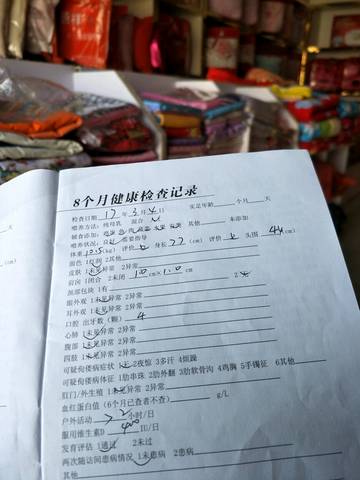 8个月健康检查记录
检查日期 17 年 3 月 4 日 实足年龄 个月 天
喂养方法: 纯母乳 混合 ✓
辅食添加: 其他 未添加
喂养状况: 良好 需要指导
体重 10.5 (kg) 评价 上 身长 77 (cm) 评价 上 头围 44 cm
面色 1红润 2其他
皮肤 1未见异常 2异常
前囟 1闭合 2未闭 1.0 cm×1.0 cm
颈部包块 1有 2无
眼外观 1未见异常 2异常
耳外观 1未见异常 2异常
口腔 出牙数(颗) 4
心肺 1未见异常 2异常
腹部 1未见异常 2异常
四肢 1未见异常 2异常
可疑佝偻病症状 1无 2夜惊 3多汗 4烦躁
可疑佝偻病体征 1肋串珠 2肋外翻 3肋软骨沟 4鸡胸 5手镯征 6其他
肛门/外生殖 1未见异常 2异常
血红蛋白值(6个月已查者不查) g/L
户外活动 >2 小时/日
服用维生素D 400 IU/日
发育评估 1通过 2未过
两次随访间患病情况 1未患病 2患病
其他